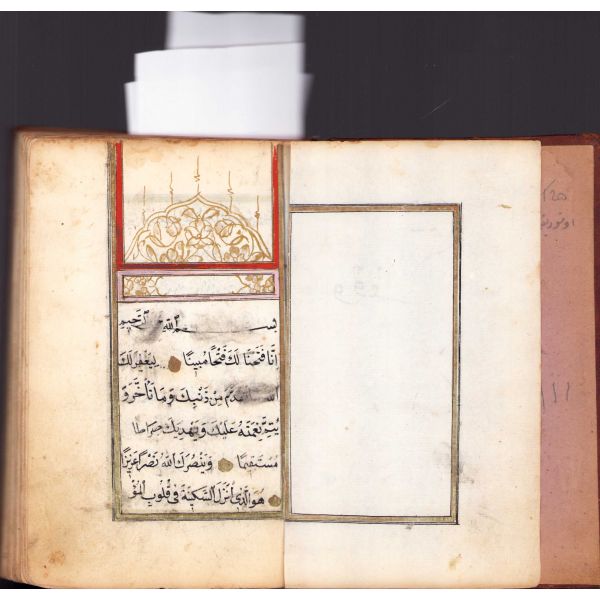 بسم الله الرحيم
اِنَّا فَتَحْنَا لَكَ فَتْحًا مُبِينًا لِيَغْفِرَ لَكَ
اللّٰهُ تَقَدَّمَ مِنْ ذَنْبِكَ وَمَا تَأَخَّرَ وَ
يُتِمَّ نِعْمَتَهُ عَلَيْكَ وَيَهْدِيَكَ صِرَاطًا
مُسْتَقِيمًا وَيَنْصُرَكَ اللّٰهُ نَصْرًا عَزِيزًا
هُوَ الَّذِي اَنْزَلَ السَّكِينَةَ فِي قُلُوبِ الْمُؤْ